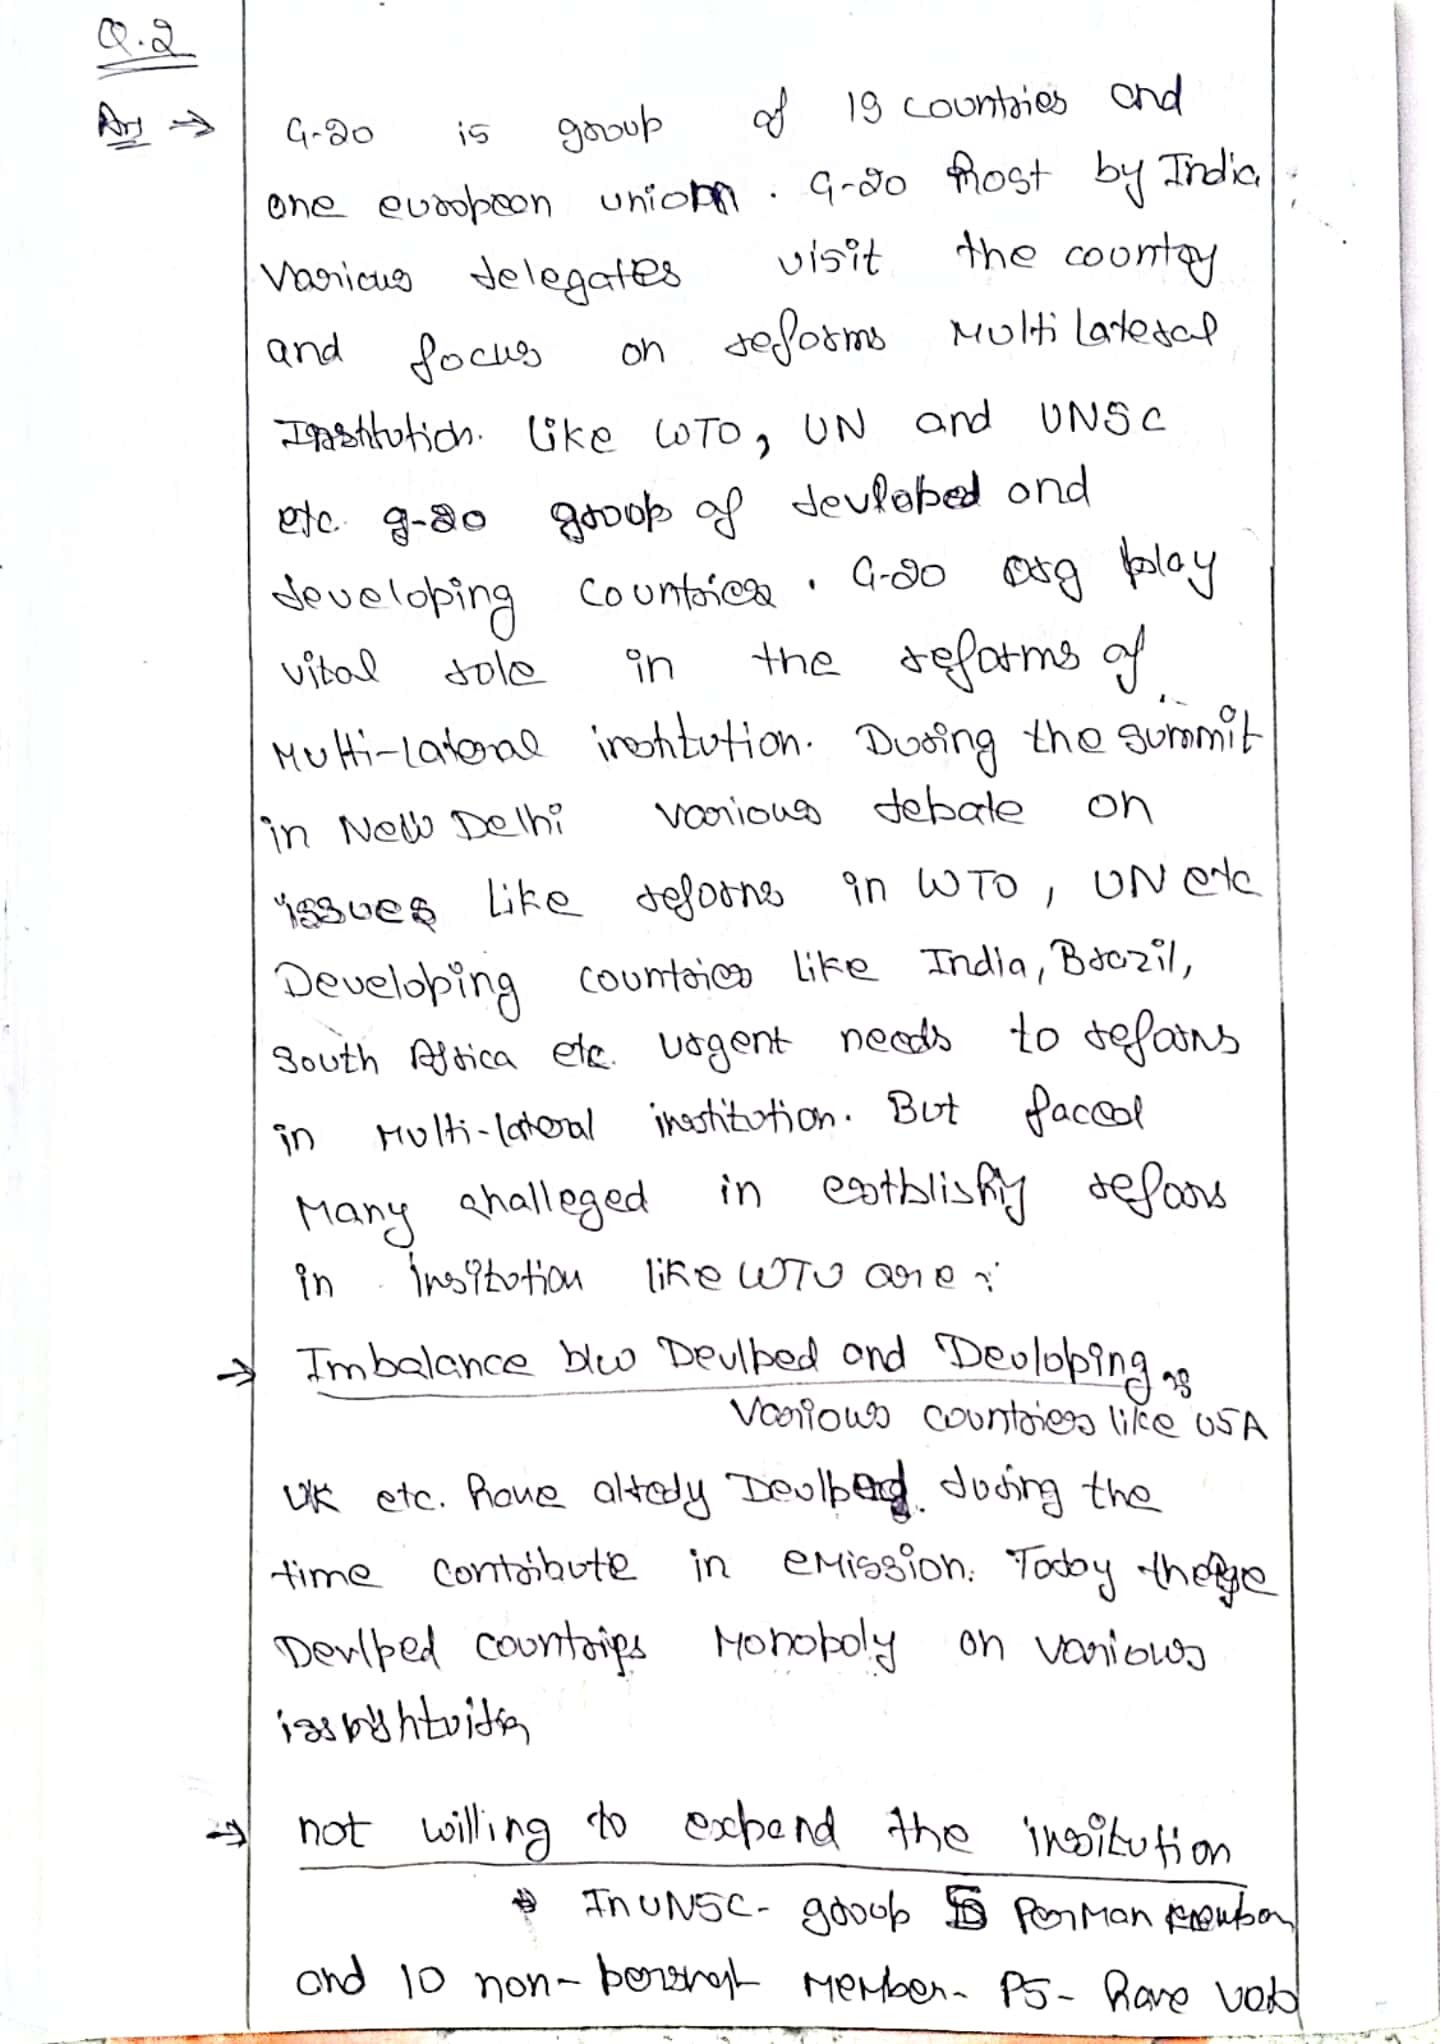 Q.2
Ans → G-20 is group of 19 countries and
one european union . G-20 host by India
Various delegates visit the country
and focus on reforms Multi Lateral
Institution. like WTO, UN and UNSC
etc. g-20 group of devloped and
developing countries . G-20 org play
vital role in the reforms of
Multi-lateral institution. During the summit
in New Delhi various debate on
issues like reforms in WTO, UN etc
Developing countries like India, Brazil,
South Africa etc. urgent needs to reforms
in Multi-lateral institution. But faced
Many challeged in estblishing refoms
in insitution like WTO are :
→ Imbalance b/w Devlped and Devloping :
Various countries like USA
UK etc. have alredy Devlped. during the
time contribute in emission. Today these
Devlped countries Monopoly on various
→ not willing to expend the insitution
→ In UNSC- group 5 Perman
and 10 non- Member- P5- have veto